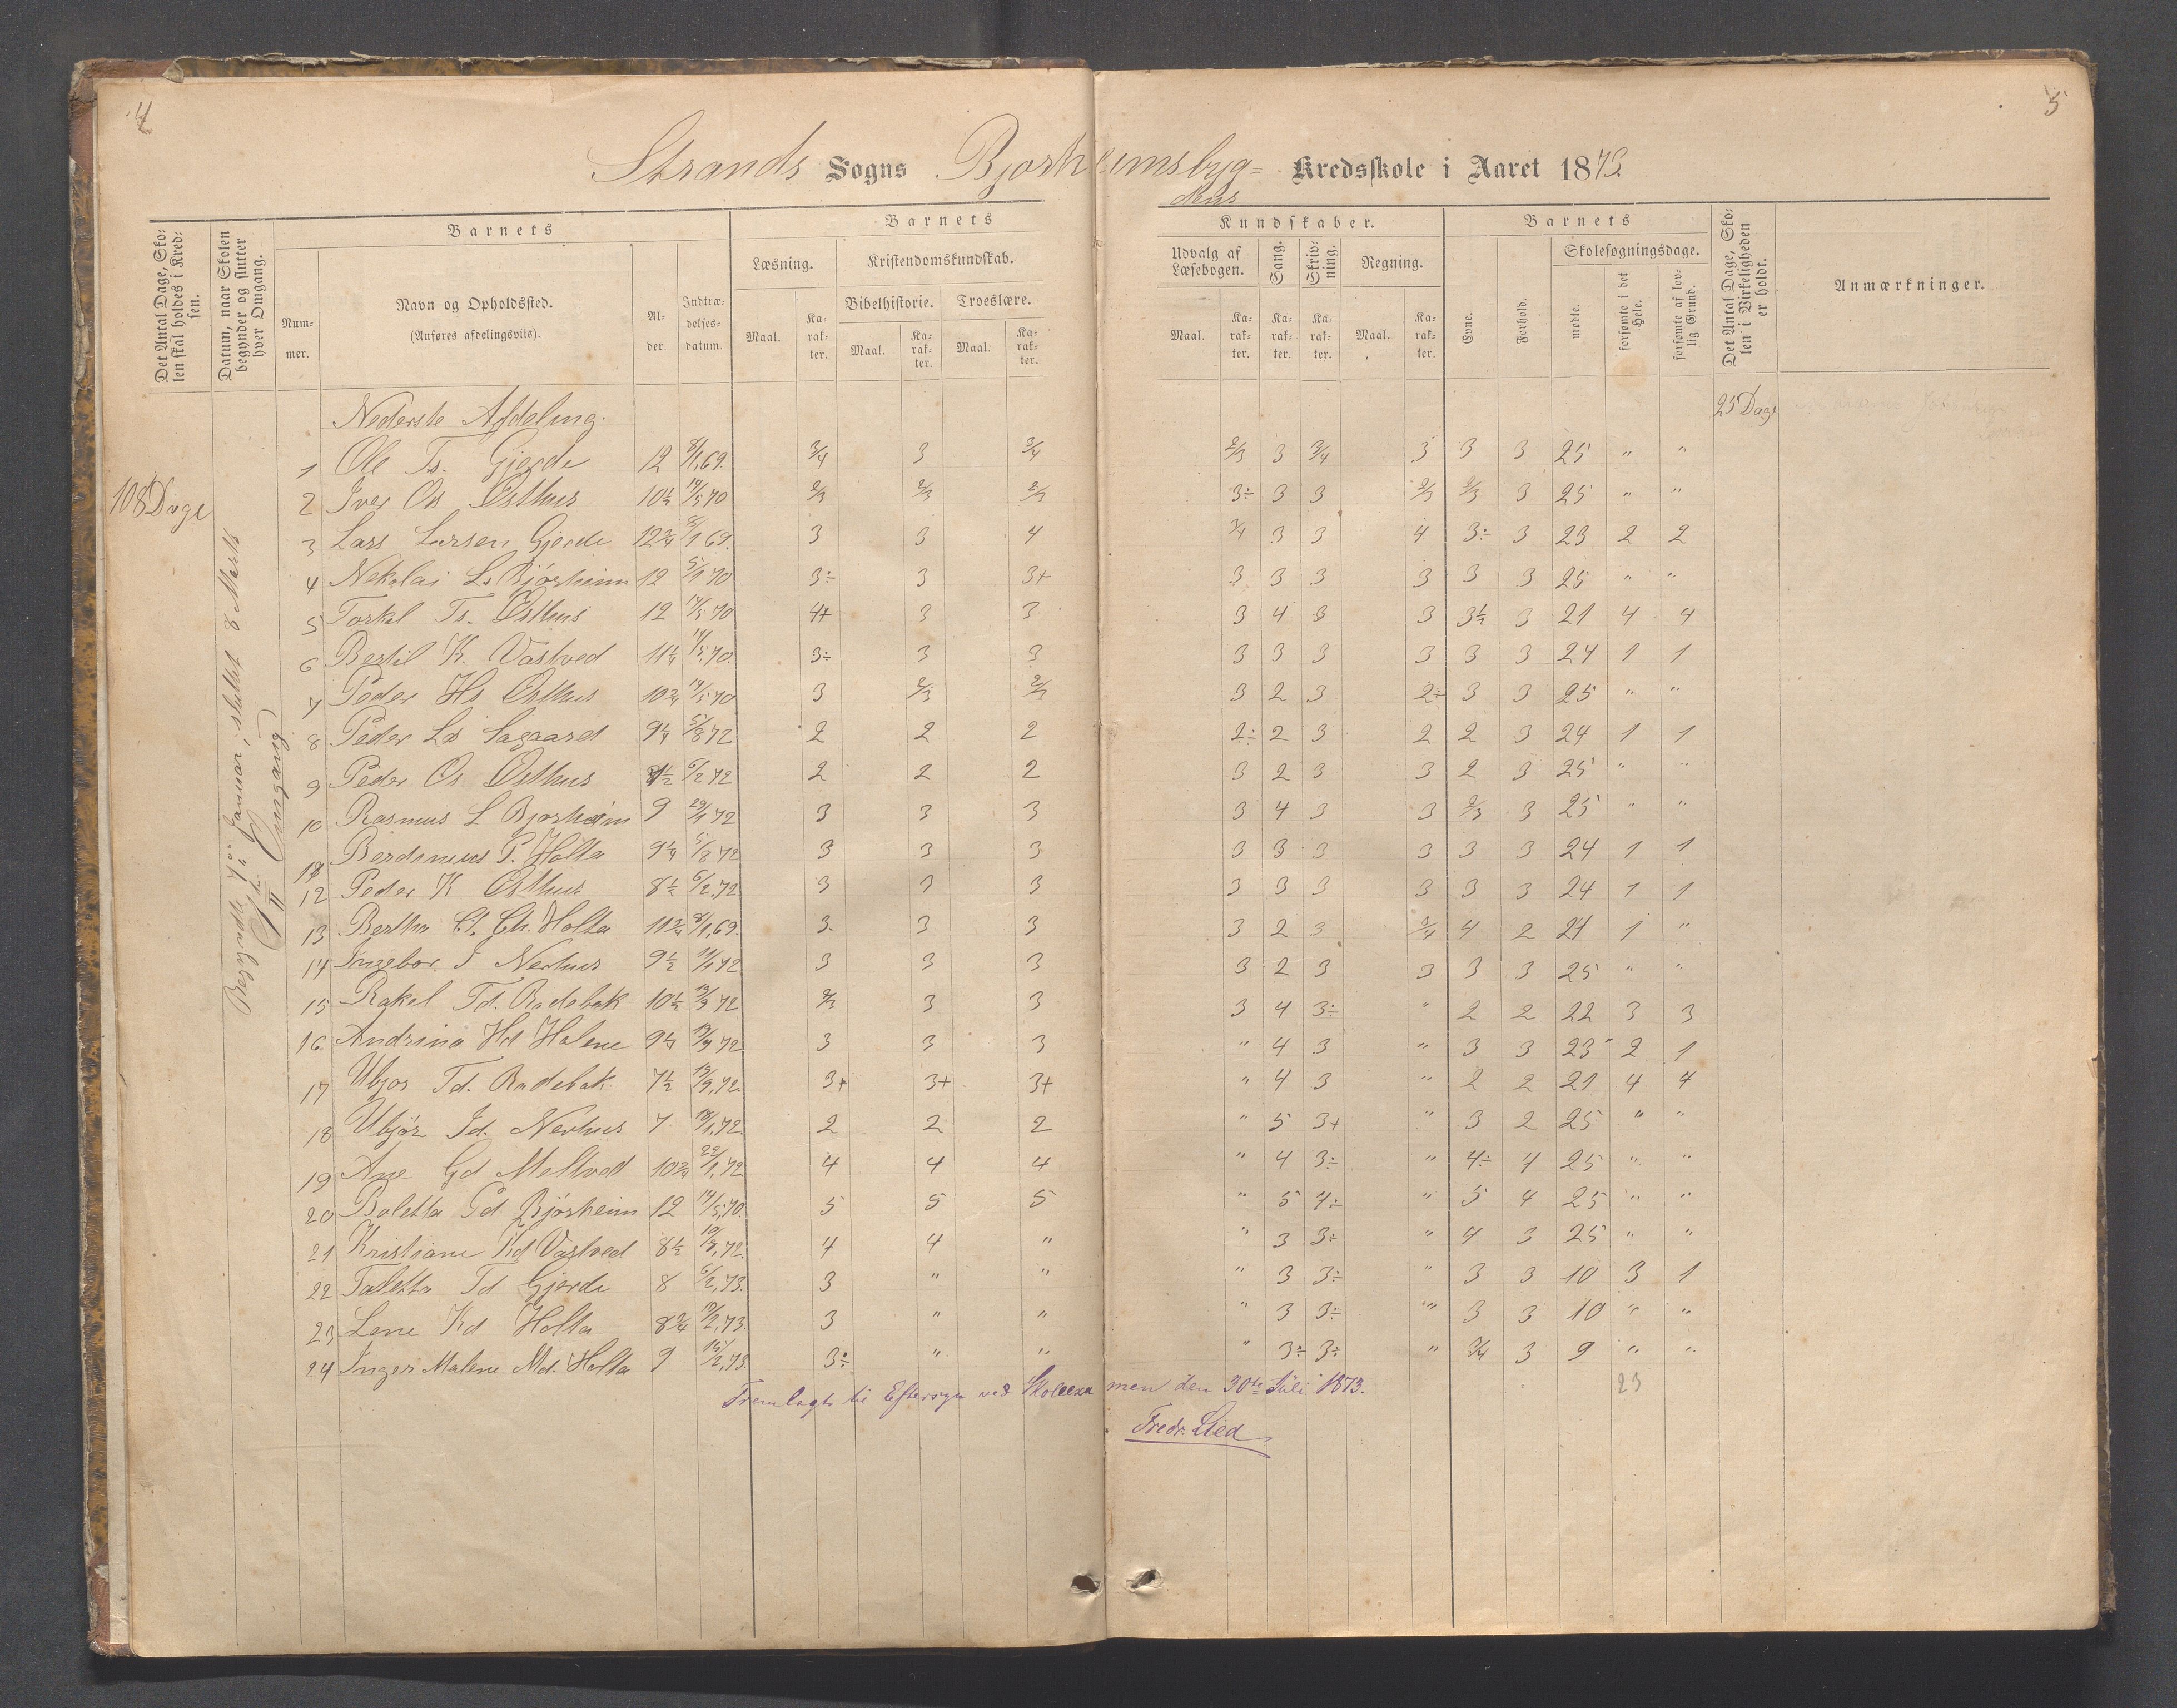 4
5
Strands Sogns Bjorheimsbyg= Kredsskole i Aaret 1873.
dens
Det Antal Dage, Skolen skal holdes i Kredsen.
Datum, naar Skolen begynder og slutter hver Omgang.
Barnets
Nummer.
Navn og Opholdssted.
(Anføres afdelingsviis).
Alder.
Indtrædelsesdatum.
Barnets Kundskaber.
Læsning. Maal. Karakter.
Kristendomskundskab.
Bibelhistorie. Maal. Karakter.
Troeslære. Maal. Karakter.
Udvalg af Læsebogen. Maal. Karakter.
Sang. Karakter.
Skrivning. Karakter.
Regning. Maal. Karakter.
Barnets
Evne. Forhold.
Skolesøgningsdage.
mødte. forsømte i det Hele. forsømte af lovlig Grund.
Det Antal Dage, Skolen i Virkeligheden er holdt.
Anmærkninger.
108 Dage
Januar, sluttet 8 Marts
Omgang
25 Dage
Nederste Afdeling.
1 Ole Ts. Gjerde 12 8/1,69. 3/4 3 3/4 2/3 3 3/4 3 3 3 25 " "
2 Iver Os Østhus 10½ 14/5 70 2/3 2/3 2/3 3÷ 3 3 2/3 2/3 3 25 " "
3 Lars Larsen Gjerde 12¾ 8/1 69. 3 3 4 3/4 3 3 4 3÷ 3 23 2 2
4 Nekolai Ls Bjórheim 12 5/1 70 3÷ 3 3+ 3 3 3 3 3 3 25 " "
5 Torkel Ts. Østhus 12 14/5 70 4+ 3 3 3 4 3 3 3½ 3 21 4 4
6 Bertil K. Vastved 11¼ 14/5,70. 3÷ 3 3 3 3 3 3 3 3 24 1 1
7 Peder Hs Østhus 10¾ 14/5 70 3 2/3 2/3 3 2 3 2÷ 3 3 25 " "
8 Peder Ls Lagaard 9¼ 5/8 72 2 2 2 2÷ 2 3 2 2 3 24 1 1
9 Peder Os Østhus 6/2 72 2 2 2 3 2 3 3 2 3 25 " "
10 Rasmus L Bjorheim 9 29/1 72 3 3 3 3 4 3 3 2/3 3 25 " "
11 Berdinius P. Holta 9¼ 5/8 72 3 3 3 3 3 3 3 3 3 24 1 1
12 Peder K Østhus 8½ 6/2,72. 3 3 3 3 3 3 3 3 3 24 1 1
13 Bertha Ct. Ch. Holta 11¾ 8/1,69. 3 3 3 3 2 3 3/4 4 2 24 1 "
14 Ingebor J Nerhus 9½ 11/1 72 3 3 3 3 2 3 3 3 3 25 " "
15 Rakel Td. Rodebak 10½ 13/9 72 2/3 3 3 3 4 3÷ " 2 2 22 3 3
16 Andrina Hd Halene 9¼ 13/9 72 3 3 3 " 4 3 " 3 3 23 2 1
17 Ubjor Td. Rodebak 7½ 13/9,72. 3+ 3+ 3+ " 4 3 " 2 2 21 4 4
18 Ubjór Jd. Nerhus 7 18/1,72. 2 2 2 " 5 3+ " 3 2 25 " "
19 Ane Gd Meltvedt 10¾ 22/1,72 4 4 4 " 4 3÷ " 4÷ 4 25 " "
20 Boletta Pd Bjórheim 12 14/5,70. 5 5 5 " 5 4÷ " 5 4 25 " "
21 Kristiane Kd Vastved 8½ 10/9,72. 4 4 " " 3 3÷ " 4 3 25 " "
22 Taletta Td Gjerde 8 6/2,73. 3 " " " 3 3÷ " 3 3 10 3 1
23 Lene Kd Holta 8¾ 10/2,73. 3 " " " 3 3÷ " 3 3 10 " "
24 Inger Malene Md. Holta 9 15/2,73. 3÷ " " " 3÷ 3÷ " 3/4 3 9 " "
23
Fremlagt til Eftersyn ved Skoleexamen den 30te Juli 1873.
Fredr. Lied